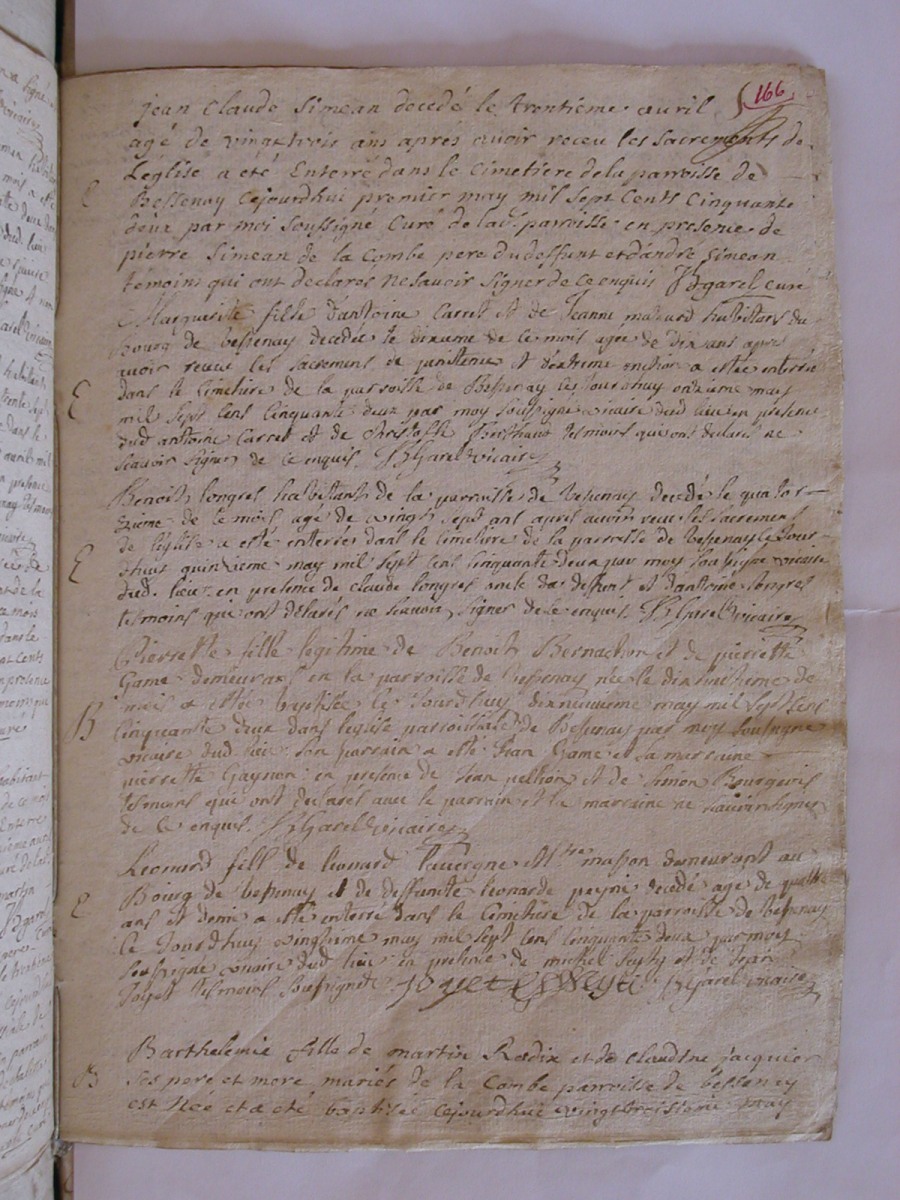 166
jean Claude Simean decedé le trentieme avril
agé de vingttrois ans aprés avoir receu les Sacrements de
L'église a été Enterré dans le Cimetiere de la parroisse de
E
Bessenay cejourdhui premier may mil sept Cents Cinquante
deux par moi soussigné Curé de lad. parroisse en presence de
pierre Simean de la Combe pere du deffunt et d'andré Simean
témoins qui ont declarés ne savoir signer de ce enquis garel curé
Marguerite fille d'antoine Carret et de Jeanne habitans du
bourg de bessenay decedée le dixieme de ce mois agée de dix ans apres
avoir receu les sacrement de penitence et d'extreme onction a estée enterrée
E
dans le Cimetiere de la parroisse de Bessenay ce jourdhuy onzieme may
mil sept cens Cinquante deux par moy soussigné vicaire dud lieu en presence
dud antoine Carret et de Christofle tesmoins qui ont declarés ne
scavoir signer de ce enquis. Garel vicaire
Benoist longres habitant de la parroisse de bessenay decedé le quator-
zieme de ce mois agé de vingt sept ans apres avoir receu les sacrement
de l'eglise a esté enterré dans le cimetiere de la parroisse de bessenay ce jour-
E
dhuy quinzieme may mil sept cens Cinquante deux par moy soussigné vicaire
dud. lieu en presence de claude longres du deffunt et d'antoine longres
tesmoins qui ont declarés ne scavoir signer de ce enquis. Garel vicaire
Pierrette fille legitime de Benoist Bernachon et de pierrette
Game demeurans en la parroisse de bessenay née le dixhuitieme de
mais a estée baptisée ce Jourdhuy dixneuvieme may mil sept cens
B
Cinquante deux dans l'eglise parroissialle de Bessenay par moy soussigné
vicaire dud lieu son parrain a esté Jean Game et sa marraine
pierrette Gaynon en presence de Jean pellion et de Simon Bourgeois
tesmoins qui ont declarés avec le parrain et la marraine ne scavoir signer
de ce enquis. Garel vicaire
Leonard fill de leonard lauergne M^tre masson demeurant au
E
Bourg de bessenay et de deffunte leonarde peyrie decedé agé de quattre
ans et demie a esté enterré dans le Cimetiere de la parroisse de bessenay
Ce Jourdhuy vingtieme may mil sept cens Cinquante deux par moy
soussigné vicaire dud lieu en presence de michel et de Jean
tesmoins soussignés Garel vicaire
Barthelemie fille de martin Rodix et de Claudine jacquier
B
ses pere et mere mariés de la Combe parroisse de bessenay
est Née et a été baptisée cejourdhui vingttroisieme may